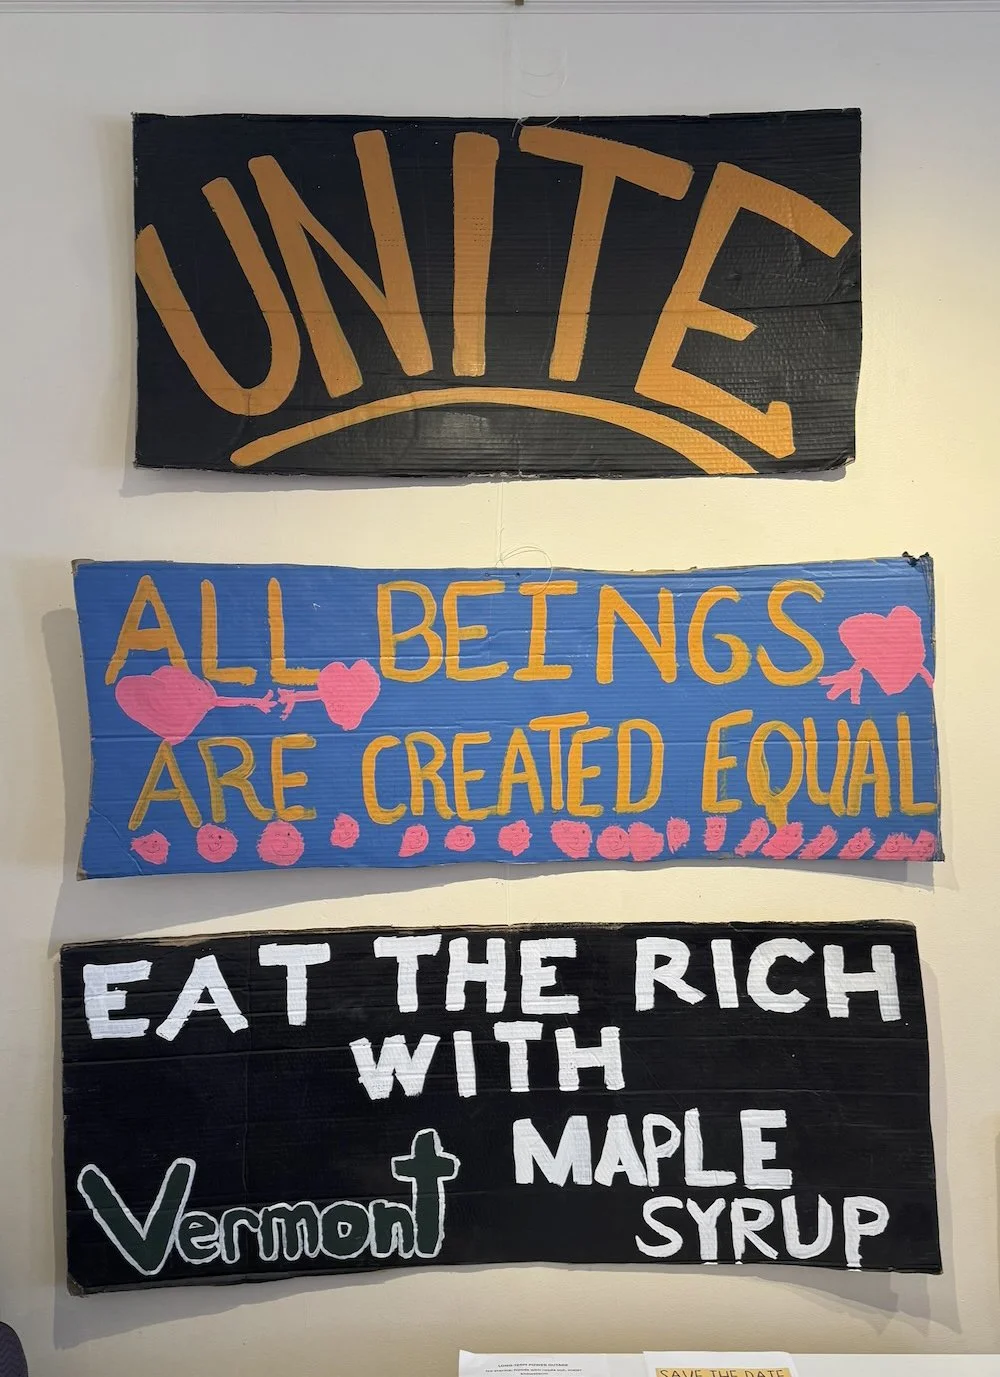 UNITE
ALL BEINGS
ARE CREATED EQUAL
EAT THE RICH
WITH
MAPLE
SYRUP
Vermont
LONG-TERM POWER OUTAGE
SAVE THE DATE